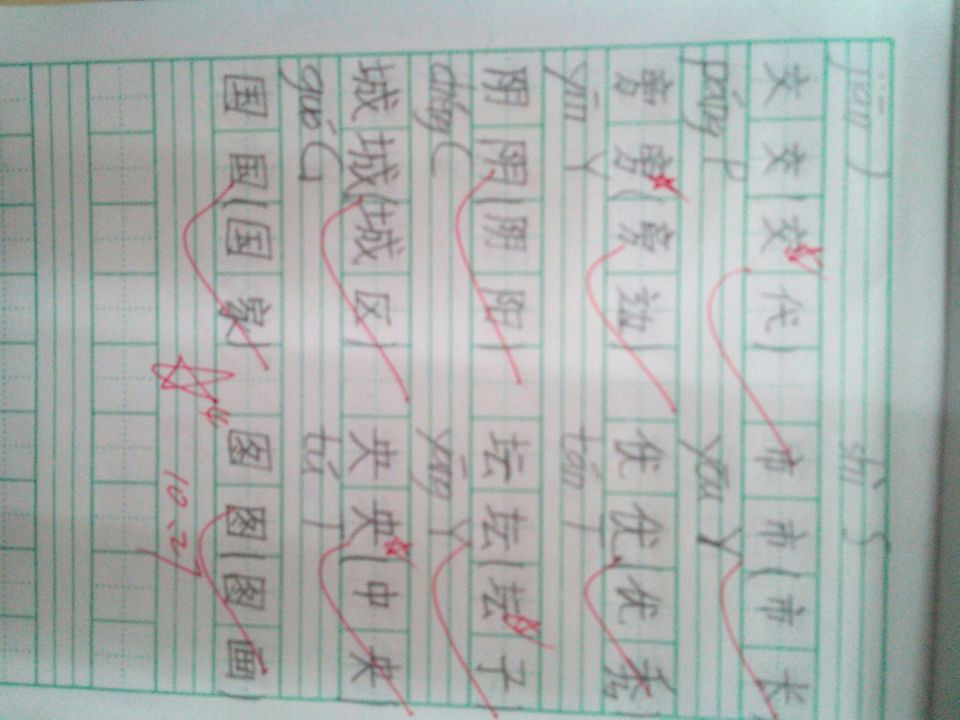 jiāo J shì S
交 交(交代) 市 市(市长)
páng P yōu Y
旁 旁(旁边) 优 优(优秀)
yīn Y tán T
阴 阴(阴阳) 坛 坛(坛子)
chéng C yāng Y
城 城(城区) 央 央(中央)
guó G tú T
国 国(国家) 图 图(图画)
10.27